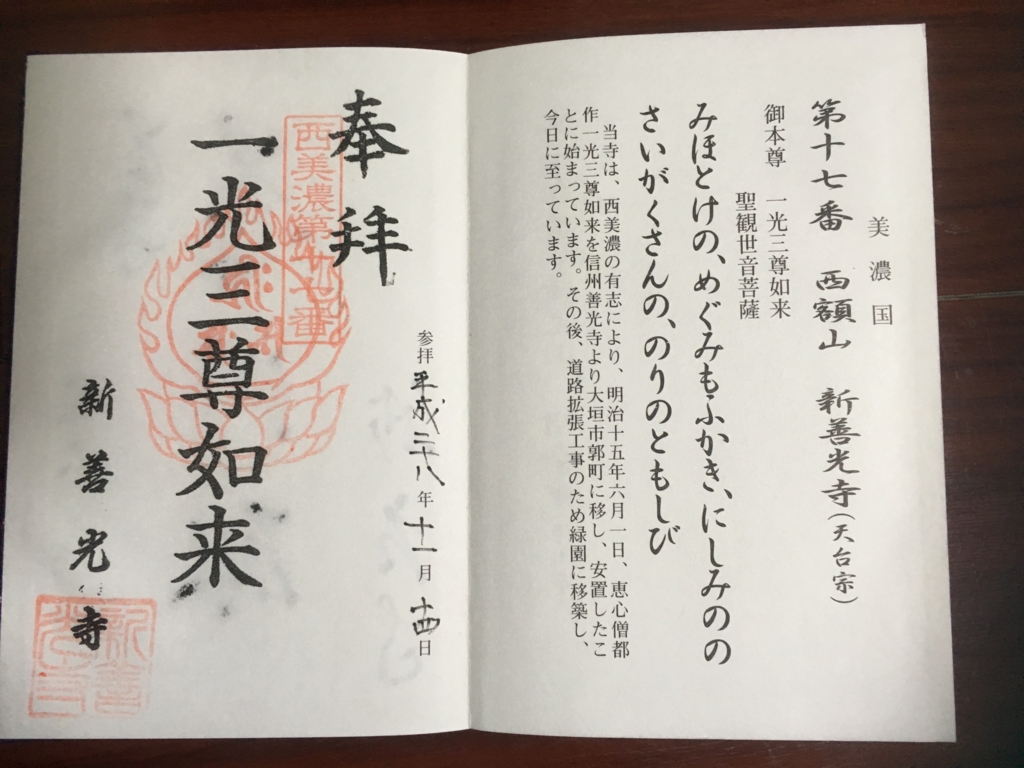 美濃国
第十七番 西額山 新善光寺(天台宗)
御本尊 一光三尊如来
聖観世音菩薩
みほとけの、めぐみもふかき、にしみのの
さいがくさんの、のりのともしび
当寺は、西美濃の有志により、明治十五年六月一日、恵心僧都
作一光三尊如来を信州善光寺より大垣市郭町に移し、安置したこ
とに始まっています。その後、道路拡張工事のため緑園に移築し、
今日に至っています。
参拝 平成二十八年十一月十四日
奉拝
西美濃第十七番
一光三尊如来
新善光寺
新善光寺